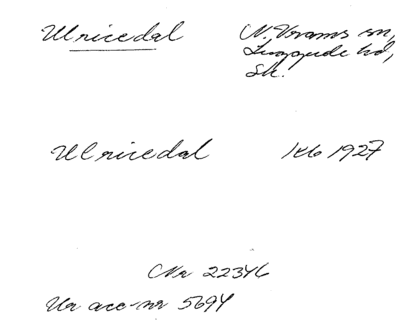 Ulricedal N. Vrams sn,
Luggude hd,
Sk.
Ulricedal 1927
CNr 22346
Ur acc-nr 5694